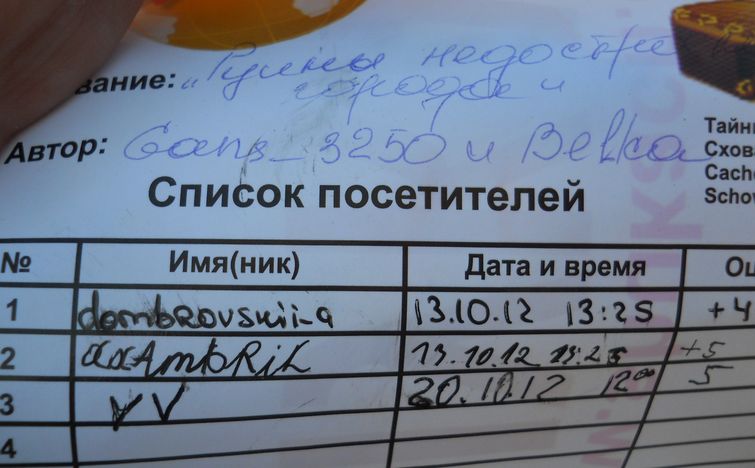 вание: „Руины недострое
городок"
Автор: Gans_3250 и Belka
Тайни
Схова
Cache
Schov
Список посетителей
№ Имя(ник) Дата и время Оц
1 dombrovskii_a 13.10.12 13:25 +4
2 13.10.12 13:25 +5
3 VV 20.10.12 12⁰⁰ 5
4